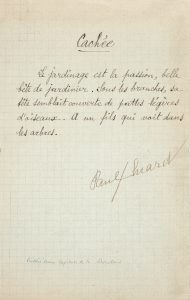 Cachée
Le jardinage est la passion, belle
bête de jardinier. Sous les branches, sa
tête semblait couverte de pattes légères
d'oiseaux. A un fils qui voit dans
les arbres.
René Char